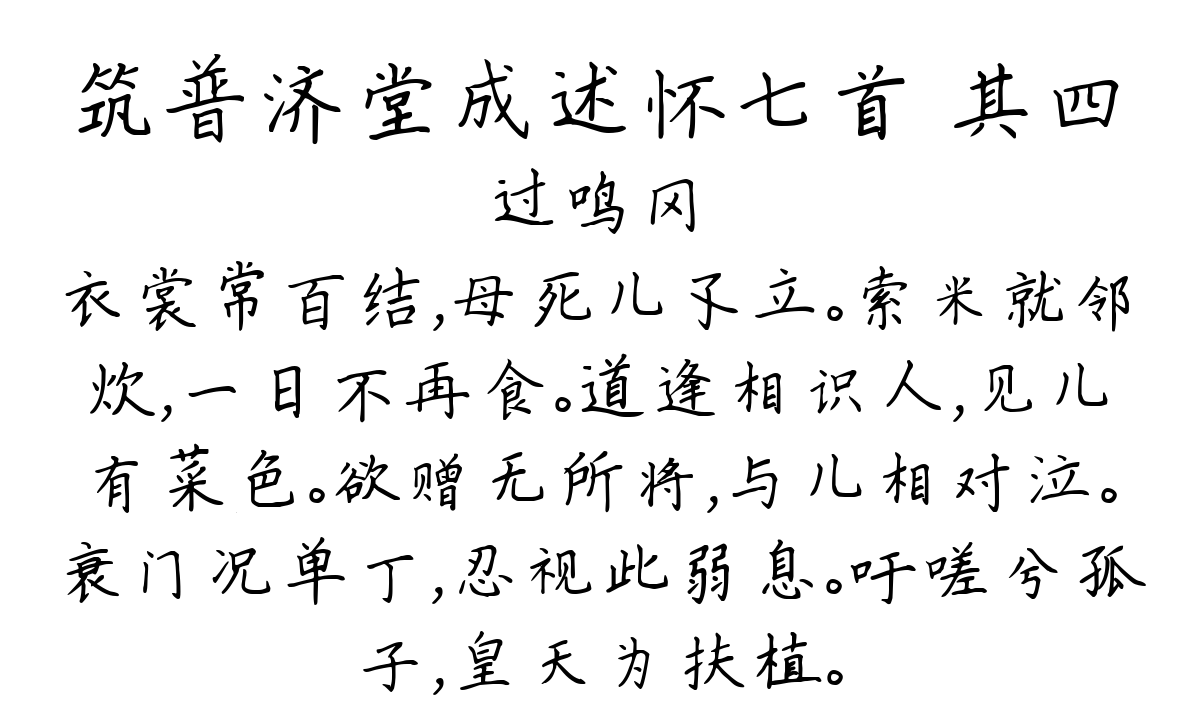 筑普济堂成述怀七首 其四
过鸣冈
衣裳常百结,母死儿孑立。索米就邻
炊,一日不再食。道逢相识人,见儿
有菜色。欲赠无所将,与儿相对泣。
衰门况单丁,忍视此弱息。吁嗟兮孤
子,皇天为扶植。